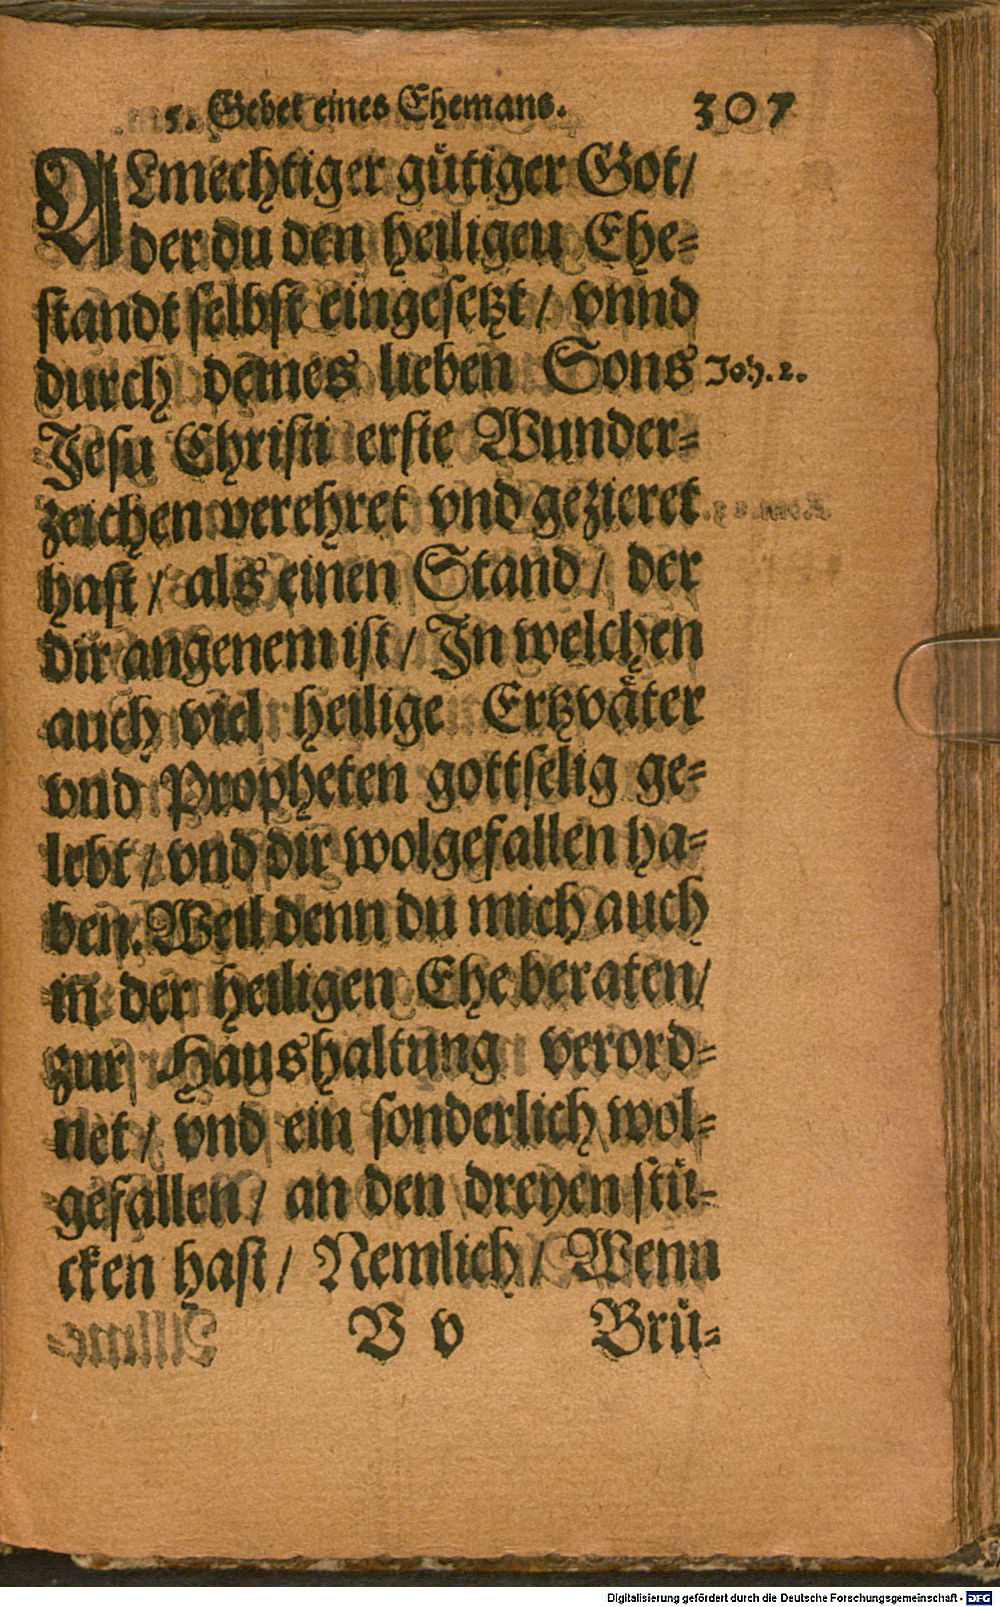 5. Gebet eines Ehemans. 307
ALmechtiger gütiger Got/
der du den heiligen Ehe-
standt selbst eingesetzt / vnnd
durch deines lieben Sons Joh. 2.
Jesu Christi erste Wunder-
zeichen verehret vnd gezieret
hast / als einen Stand / der
dir angenem ist / In welchen
auch viel heilige Ertzväter
vnd Propheten gottselig ge-
lebt / vnd dir wolgefallen ha-
ben. Weil denn du mich auch
in der heiligen Ehe beraten/
zur Haushaltung verord-
net / vnd ein sonderlich wol-
gefallen / an den dreyen stü-
cken hast / Nemlich / Wenn
V v Brü-
Digitalisierung gefördert durch die Deutsche Forschungsgemeinschaft - DFG